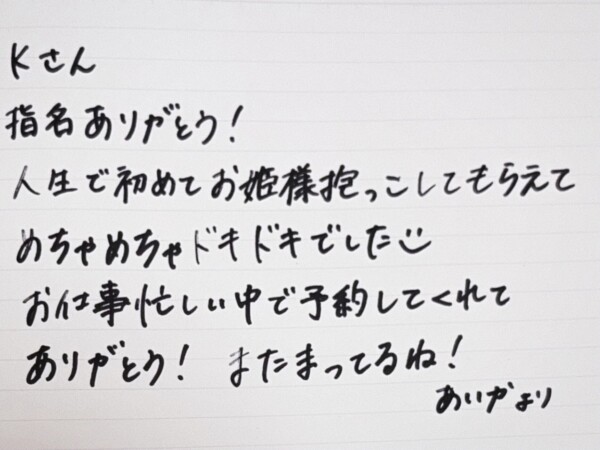 Kさん
指名ありがとう!
人生で初めてお姫様抱っこしてもらえて
めちゃめちゃドキドキでした
お仕事忙しい中で予約してくれて
ありがとう! またまってるね!
あいかより